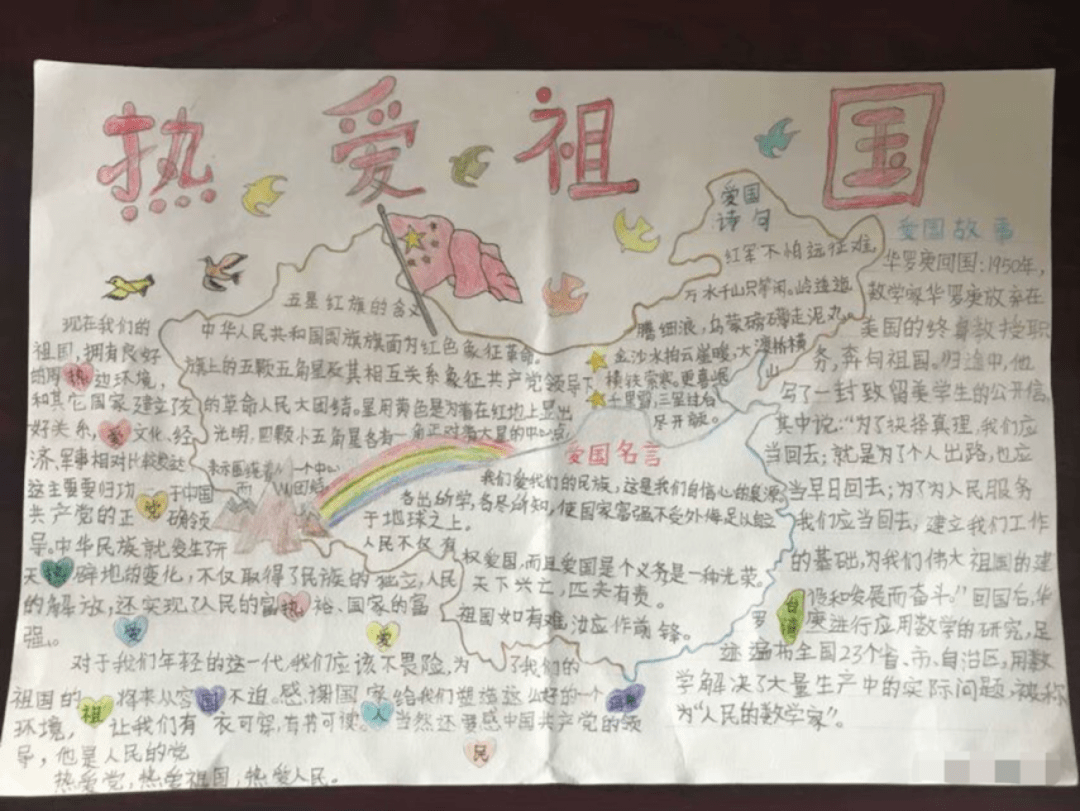 热爱祖国
爱国
诗句
红军不怕远征难,
万水千山只等闲。
腾细浪,乌蒙磅礴走泥丸。
金沙水拍云崖暖,大渡桥横
铁索寒。更喜岷
山
千里雪,三军过后
尽开颜。
五星红旗的含义
中华人民共和国国旗旗面为红色象征革命。
旗上的五颗五角星及其相互关系象征共产党领导下
的革命人民大团结。星用黄色是为着在红地上显出
光明,四颗小五角星各有一角正对着大星的中心点,
表示围绕着一个中心
而团结。
爱国名言
我们爱我们的民族,这是我们自信心的泉源
各出所学,各尽所知,使国家富强不受外侮足以自立
于地球之上。
人民不仅有
权爱国,而且爱国是个义务是一种光荣。
天下兴亡,匹夫有责。
祖国如有难,汝应作前锋。
现在我们的
祖国,拥有良好
的周边环境,
和其它国家建立了友
好关系,文化、经
济、军事相对比较发达
这主要要归功于中国
共产党的正确领
导。中华民族就发生了开
天辟地的变化,不仅取得了民族的独立,人民
的解放,还实现了人民的富裕、国家的富
强。
对于我们年轻的这一代,我们应该不畏险,为了我们的
祖国的将来从容不迫。感谢国家给我们塑造这么好的一个
环境,让我们有衣可穿,有书可读。当然还要感中国共产党的领
导,他是人民的党
热爱党,热爱祖国,热爱人民。
热
爱
党
热
爱
爱
祖
国
人
民
爱国故事
华罗庚回国:1950年,
数学家华罗庚放弃在
美国的终身教授职
务,奔向祖国。归途中,他
写了一封致留美学生的公开信
其中说:“为了抉择真理,我们应
当回去;就是为了个人出路,也应
当早日回去;为了为人民服务
我们应当回去,建立我们工作
的基础,为我们伟大祖国的建
设和发展而奋斗。”回国后,华
罗庚进行应用数学的研究,足
迹遍布全国23个省、市、自治区,用数
学解决了大量生产中的实际问题,被称
为“人民的数学家”。
台湾